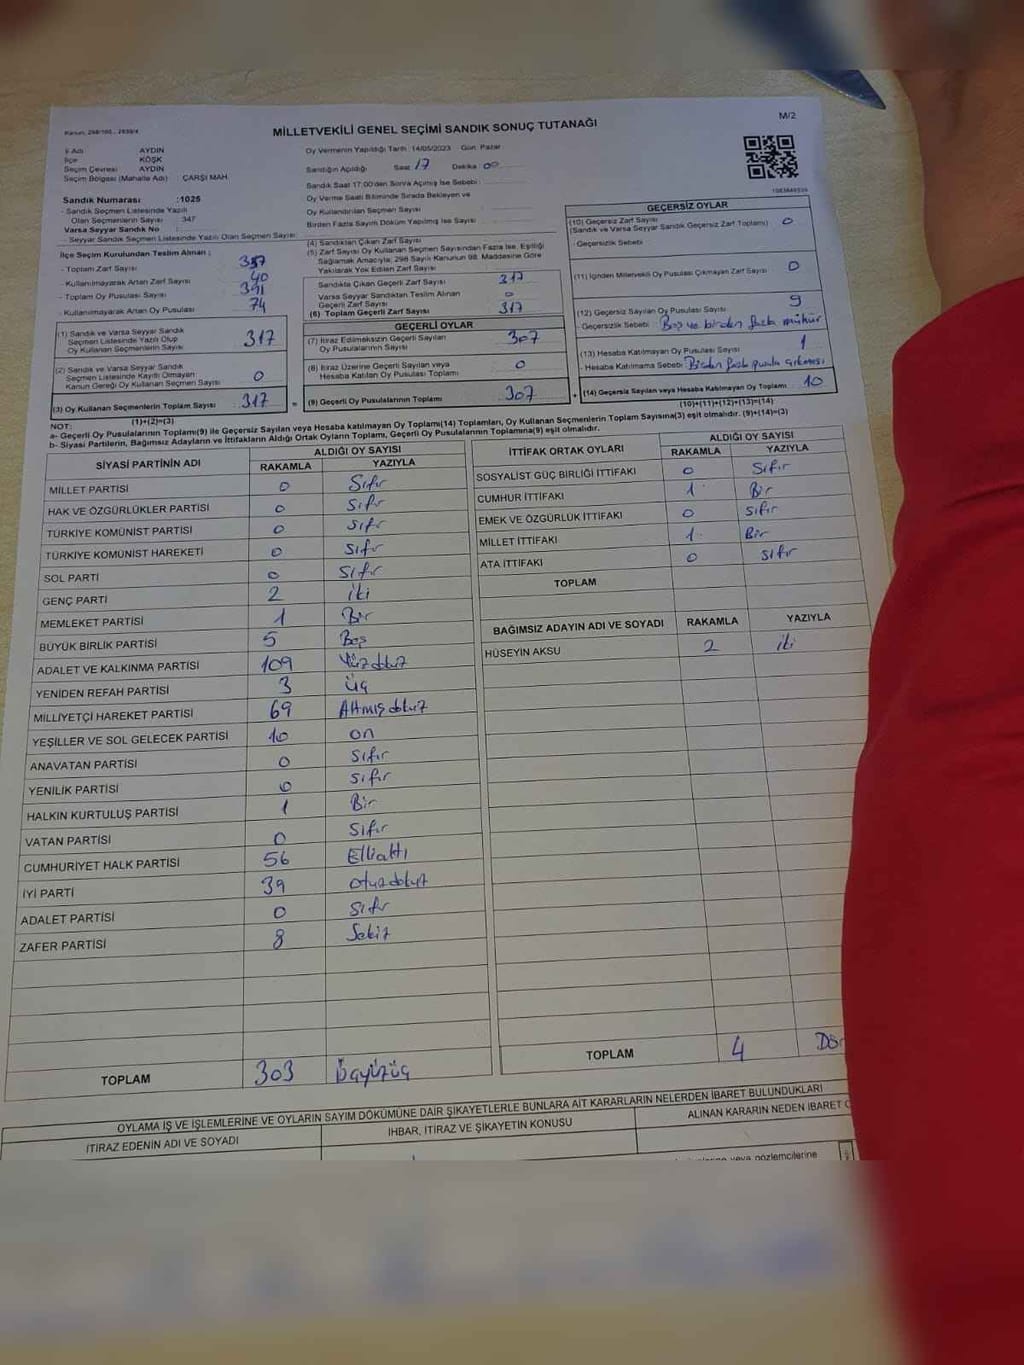 Kanun, 298/105 , 2839/4
MİLLETVEKİLİ GENEL SEÇİMİ SANDIK SONUÇ TUTANAĞI
M/2
İl Adı AYDIN
İlçe KÖŞK
Seçim Çevresi AYDIN
Seçim Bölgesi (Mahalle Adı) ÇARŞI MAH
Sandık Numarası :1025
- Sandık Seçmen Listesinde Yazılı
Olan Seçmenlerin Sayısı : 347
Varsa Seyyar Sandık No
- Seyyar Sandık Seçmen Listesinde Yazılı Olan Seçmen Sayısı:
İlçe Seçim Kurulundan Teslim Alınan ;
- Toplam Zarf Sayısı 357
- Kullanılmayarak Artan Zarf Sayısı 40
- Toplam Oy Pusulası Sayısı 391
- Kullanılmayarak Artan Oy Pusulası 74
(1) Sandık ve Varsa Seyyar Sandık
Seçmen Listesinde Yazılı Olup
Oy Kullanan Seçmenlerin Sayısı 317
(2) Sandık ve Varsa Seyyar Sandık
Seçmen Listesinde Kayıtlı Olmayan
Kanun Gereği Oy Kullanan Seçmen Sayısı 0
(3) Oy Kullanan Seçmenlerin Toplam Sayısı 317
(1)+(2)=(3)
Oy Vermenin Yapıldığı Tarih :14/05/2023 Gün: Pazar
Sandığın Açıldığı Saat 17 Dakika 00
Sandık Saat 17:00'den Sonra Açılmış İse Sebebi :
Oy Verme Saati Bitiminde Sırada Bekleyen ve
Oy Kullandırılan Seçmen Sayısı :
Birden Fazla Sayım Döküm Yapılmış İse Sayısı :
(4) Sandıktan Çıkan Zarf Sayısı
(5) Zarf Sayısı Oy Kullanan Seçmen Sayısından Fazla İse, Eşitliği
Sağlamak Amacıyla; 298 Sayılı Kanunun 98. Maddesine Göre
Yakılarak Yok Edilen Zarf Sayısı
Sandıkta Çıkan Geçerli Zarf Sayısı 317
Varsa Seyyar Sandıktan Teslim Alınan
Geçerli Zarf Sayısı 0
(6) Toplam Geçerli Zarf Sayısı 317
GEÇERLİ OYLAR
(7) İtiraz Edilmeksizin Geçerli Sayılan
Oy Pusulalarının Sayısı 307
(8) İtiraz Üzerine Geçerli Sayılan veya
Hesaba Katılan Oy Pusulası Toplamı 0
= (9) Geçerli Oy Pusulalarının Toplamı 307
GEÇERSİZ OYLAR
(10) Geçersiz Zarf Sayısı
(Sandık ve Varsa Seyyar Sandık Geçersiz Zarf Toplamı) 0
- Geçersizlik Sebebi
(11) İçinden Milletvekili Oy Pusulası Çıkmayan Zarf Sayısı 0
(12) Geçersiz Sayılan Oy Pusulası Sayısı 9
- Geçersizlik Sebebi Boş ve birden fazla mühür
(13) Hesaba Katılmayan Oy Pusulası Sayısı 1
- Hesaba Katılmama Sebebi Birden fazla pusula çıkması
+ (14) Geçersiz Sayılan veya Hesaba Katılmayan Oy Toplamı 10
(10)+(11)+(12)+(13)=(14)
NOT:
a- Geçerli Oy Pusulalarının Toplamı(9) ile Geçersiz Sayılan veya Hesaba katılmayan Oy Toplamı(14) Toplamları, Oy Kullanan Seçmenlerin Toplam Sayısına(3) eşit olmalıdır. (9)+(14)=(3)
b- Siyasi Partilerin, Bağımsız Adayların ve İttifakların Aldığı Ortak Oyların Toplamı, Geçerli Oy Pusulalarının Toplamına(9) eşit olmalıdır.
SİYASİ PARTİNİN ADI ALDIĞI OY SAYISI
RAKAMLA YAZIYLA
MİLLET PARTİSİ 0 Sıfır
HAK VE ÖZGÜRLÜKLER PARTİSİ 0 Sıfır
TÜRKİYE KOMÜNİST PARTİSİ 0 Sıfır
TÜRKİYE KOMÜNİST HAREKETİ 0 Sıfır
SOL PARTİ 0 Sıfır
GENÇ PARTİ 2 iki
MEMLEKET PARTİSİ 1 Bir
BÜYÜK BİRLİK PARTİSİ 5 Beş
ADALET VE KALKINMA PARTİSİ 109 Yüzdokuz
YENİDEN REFAH PARTİSİ 3 Üç
MİLLİYETÇİ HAREKET PARTİSİ 69 Altmışdokuz
YEŞİLLER VE SOL GELECEK PARTİSİ 10 on
ANAVATAN PARTİSİ 0 Sıfır
YENİLİK PARTİSİ 0 Sıfır
HALKIN KURTULUŞ PARTİSİ 1 Bir
VATAN PARTİSİ 0 Sıfır
CUMHURİYET HALK PARTİSİ 56 Ellialtı
İYİ PARTİ 39 otuzdokuz
ADALET PARTİSİ 0 Sıfır
ZAFER PARTİSİ 8 Sekiz
TOPLAM 303 Üçyüzüç
İTTİFAK ORTAK OYLARI ALDIĞI OY SAYISI
RAKAMLA YAZIYLA
SOSYALİST GÜÇ BİRLİĞİ İTTİFAKI 0 Sıfır
CUMHUR İTTİFAKI 1 Bir
EMEK VE ÖZGÜRLÜK İTTİFAKI 0 Sıfır
MİLLET İTTİFAKI 1 Bir
ATA İTTİFAKI 0 Sıfır
TOPLAM
BAĞIMSIZ ADAYIN ADI VE SOYADI RAKAMLA YAZIYLA
HÜSEYİN AKSU 2 iki
TOPLAM 4 Dör
OYLAMA İŞ VE İŞLEMLERİNE VE OYLARIN SAYIM DÖKÜMÜNE DAİR ŞİKAYETLERLE BUNLARA AİT KARARLARIN NELERDEN İBARET BULUNDUKLARI
İTİRAZ EDENİN ADI VE SOYADI İHBAR, İTİRAZ VE ŞİKAYETİN KONUSU ALINAN KARARIN NEDEN İBARET O
veya gözlemcilerine